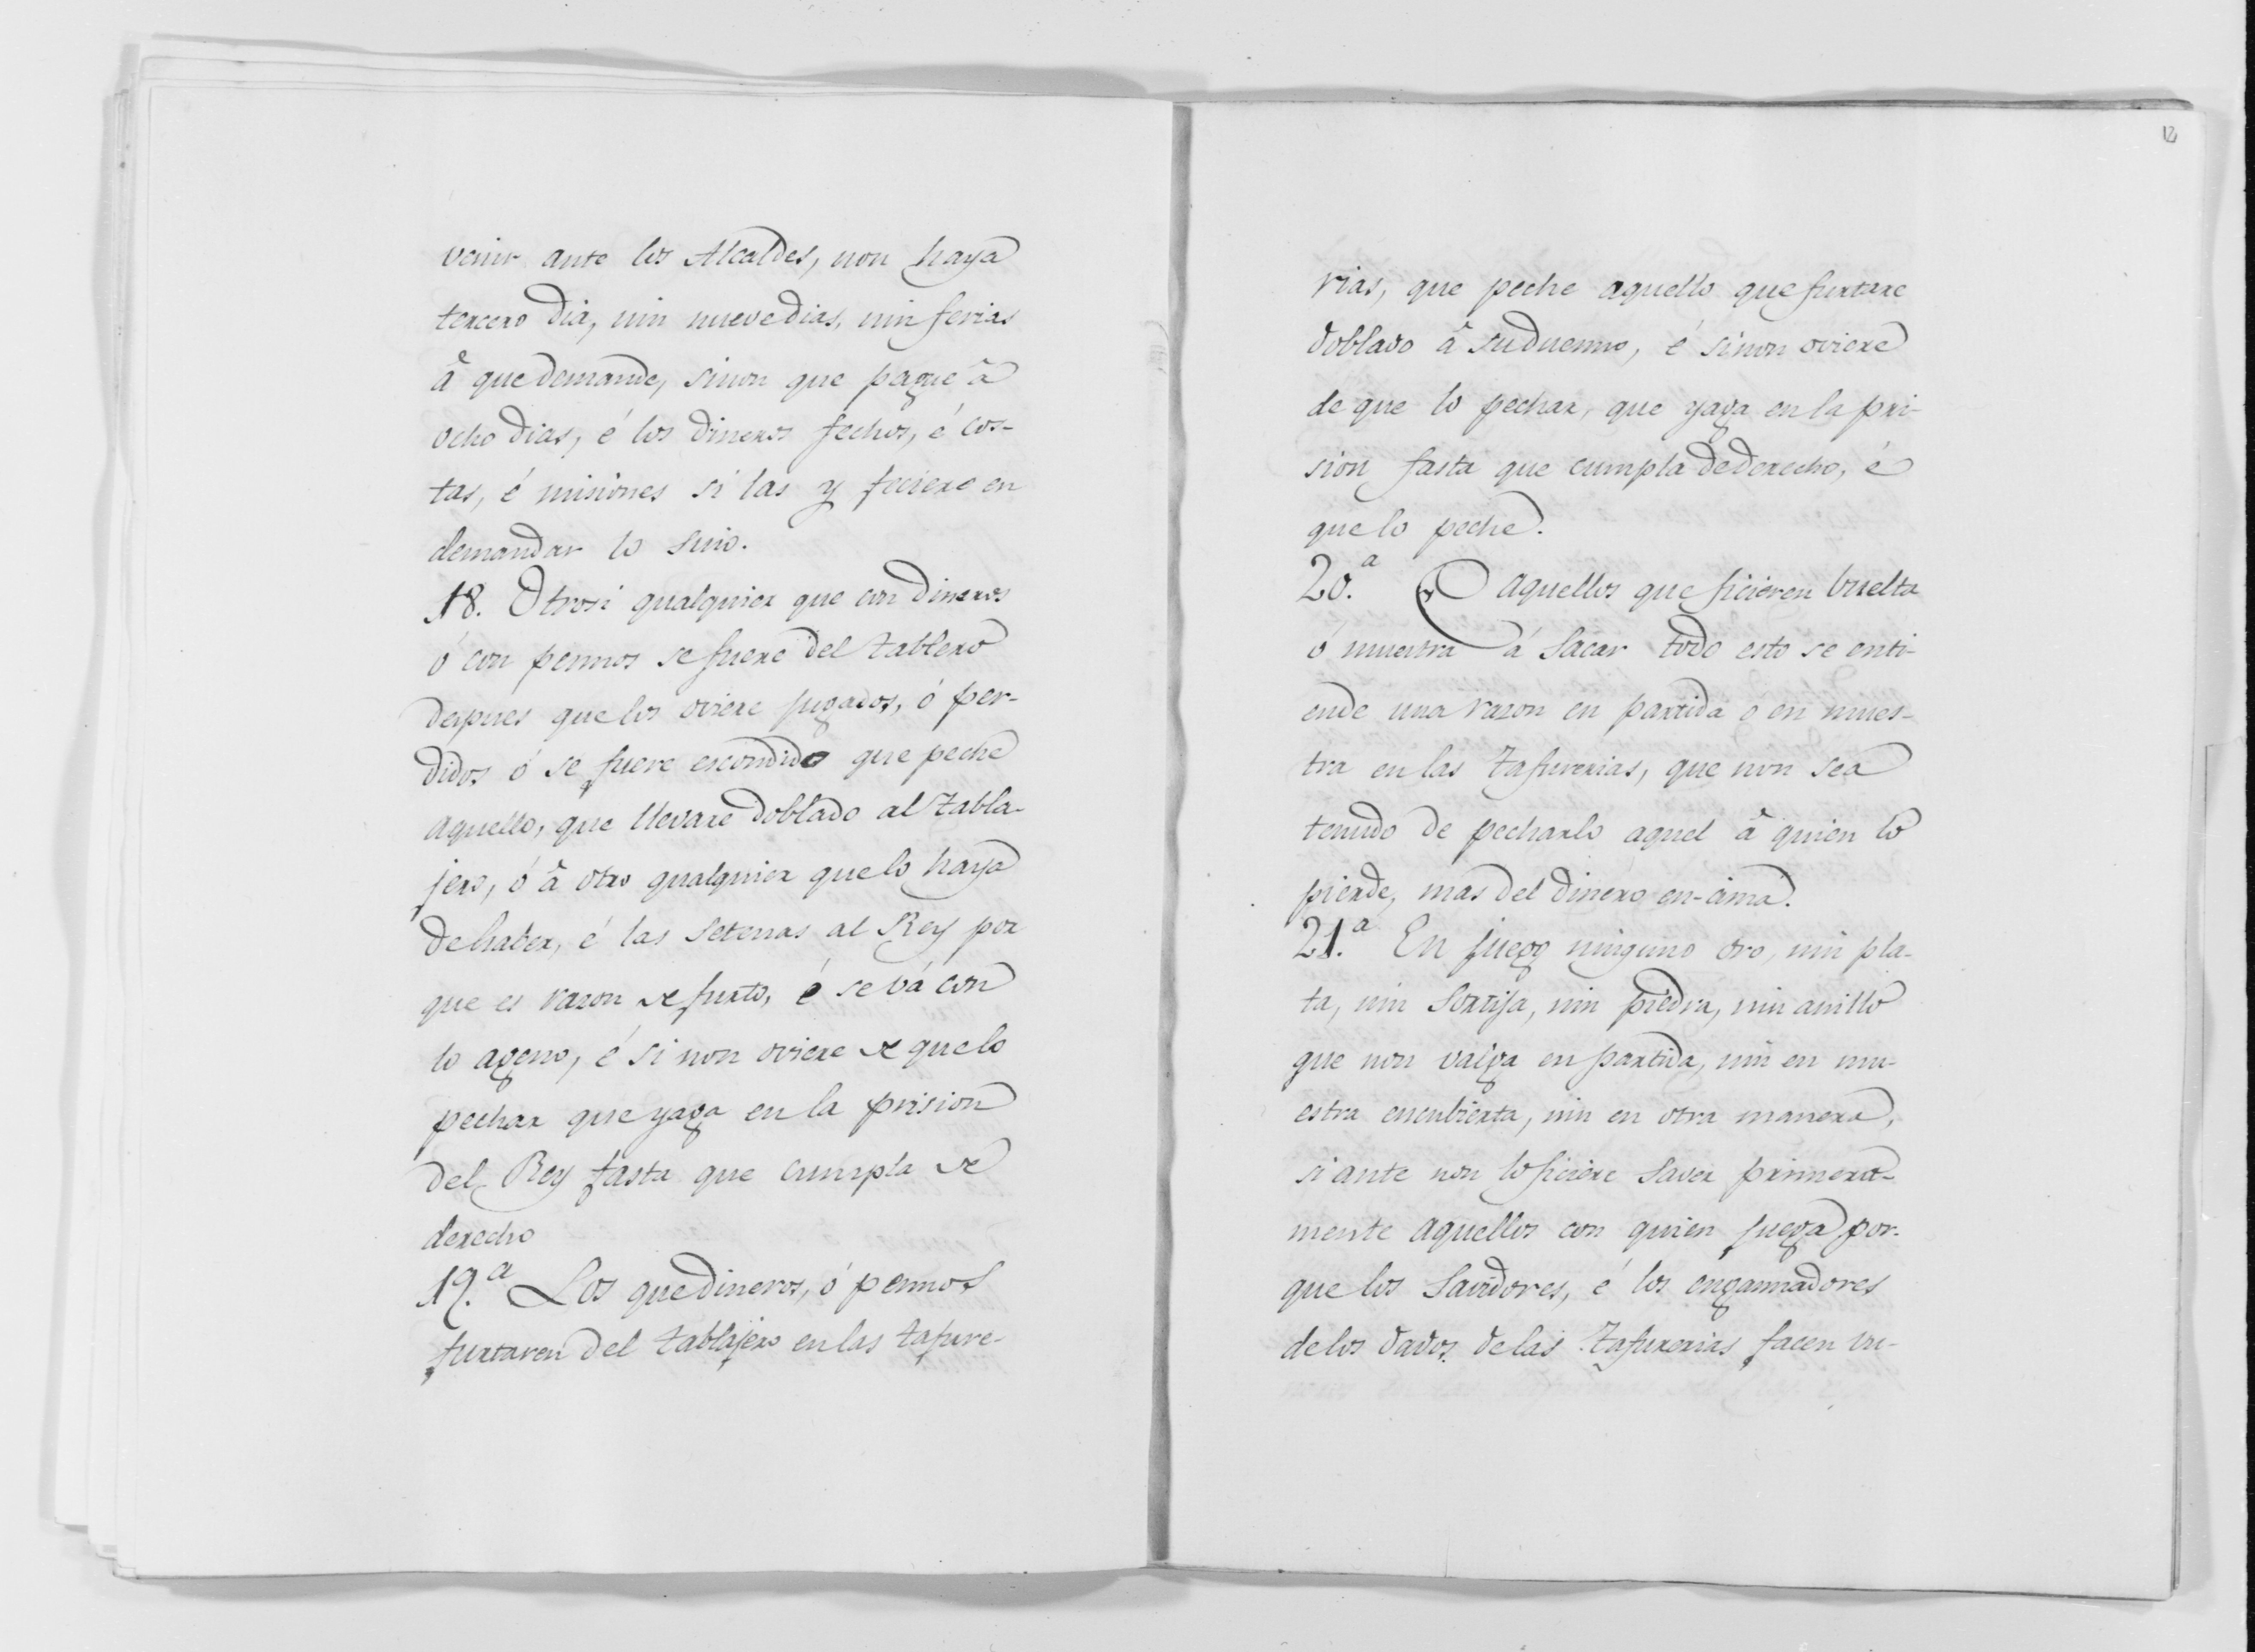 venir ante los Alcaldes, non haya
tercero dia, nin nueve dias, nin ferias
â que demande, sinon que pague â
ocho dias, é los dineros fechos, é cos-
tas, é misiones si las y feciere en
demandar lo suio.
18. Otrosi qualquier que con dineros
ó con pennos se fuere del tablero
despues que los oviere jugados, ó per-
didos ó se fuere escondido que peche
aquello, que llevare doblado al tabla-
jero, ó â otro qualquier que lo haya
de haber, é las setenas al Rey por
que es razon de furto, é se vá con
lo ageno, é si non oviere de que lo
pechar que yaga en la prision
del Rey fasta que cumpla de
derecho
19.ª Los que dineros, ó pennos
furtaren del tablajero en las tafure-
12
rias, que peche aquello que furtare
doblado â su duenno, é sinon oviere
de que lo pechar, que yaga en la pri-
sion fasta que cumpla de derecho, é
que lo peche.
20.ª O aquellos que ficieren buelta
ó muestra á sacar todo esto se enti-
ende una razon en partida ó en mues-
tra en las tafurerias, que non sea
tenudo de pecharlo aquel â quien lo
pierde, mas del dinero en-cima.
21.ª En juego ninguno oro, nin pla-
ta, nin sortija, nin piedra, nin anillo
que non valga en partida, nin en mu-
estra encubierta, nin en otra manera,
si ante non lo ficiere saver primera-
mente aquellos con quien juega por-
que los savidores, é los engannadores
de los dados de las tafurerias facen vu-